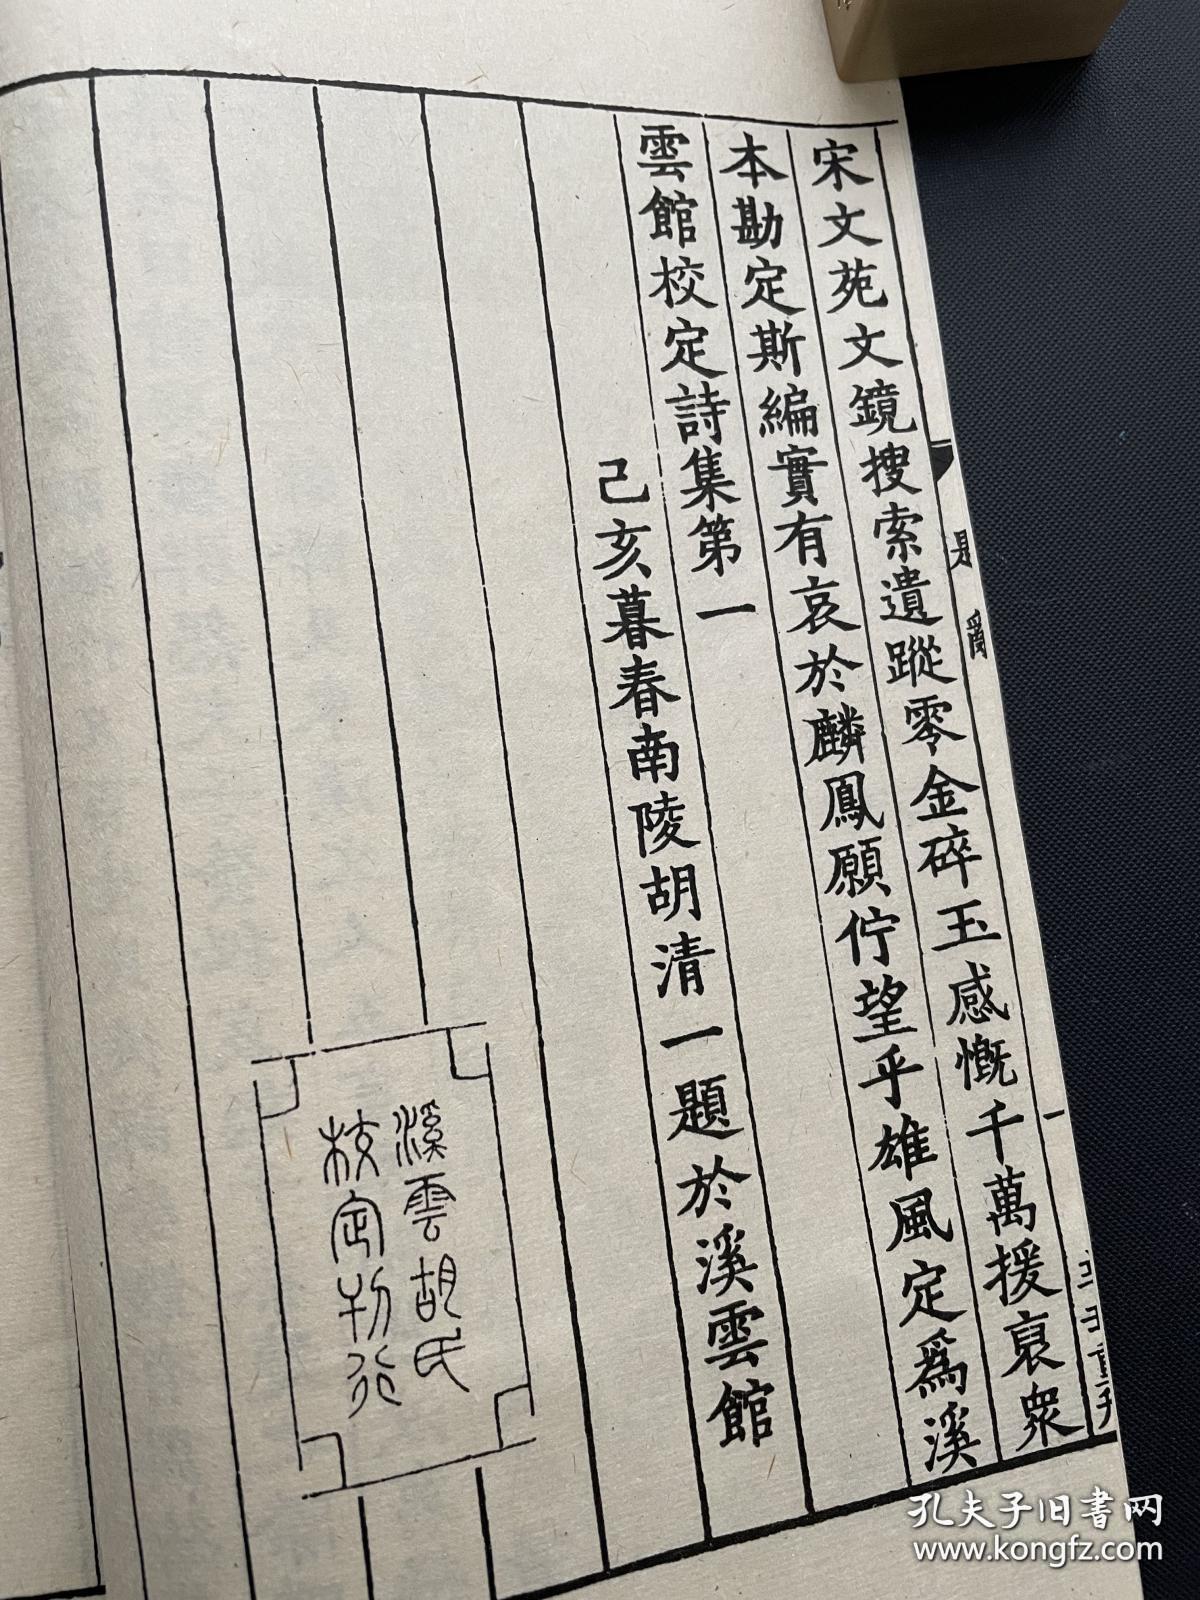 宋文苑文鏡搜索遺蹤零金碎玉感慨千萬援裒衆
本勘定斯編實有哀於麟鳳願佇望乎雄風定爲溪
雲館校定詩集第一
己亥暮春南陵胡清一題於溪雲館
溪雲胡氏
校定刊行
一
孔夫子旧书网
www.kongfz.com